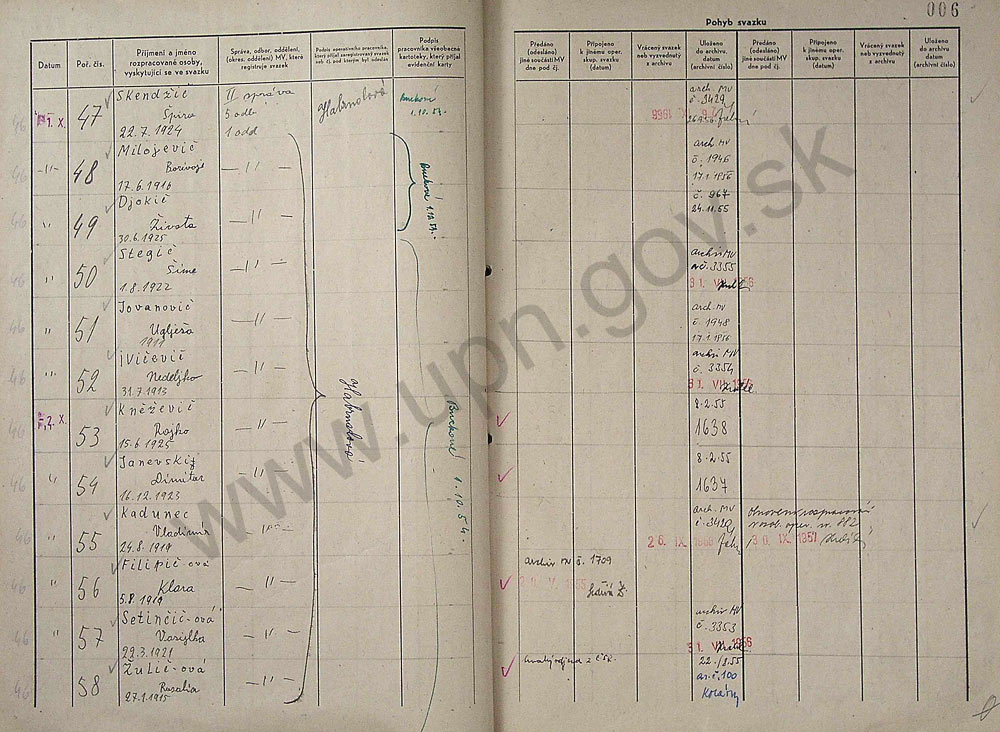 006
Pohyb svazku
Datum
Poř. čís.
Příjmení a jméno
rozpracované osoby,
vyskytující se ve svazku
Správa, odbor, oddělení,
(okres. oddělení) MV, které
registruje svazek
Podpis operativního pracovníka,
který přijal zaregistrovaný svazek
Podpis
pracovníka všeobecné
kartotéky, který přijal
evidenční karty
Předáno
(odesláno)
jiné součásti MV
dne pod čj.
Připojeno
k jinému oper.
skup. svazku
(datum)
Vrácený svazek
neb vyzvednutý
z archivu
Uloženo
do archivu,
datum
(archivní číslo)
Předáno
(odesláno)
jiné součásti MV
dne pod čj.
Připojeno
k jinému oper.
skup. svazku
(datum)
Vrácený svazek
neb vyzvednutý
z archivu
Uloženo
do archivu,
datum
(archivní číslo)
1. X.
47
Skendžič
Špiro
22.7.1924
II správa
5 odd
1 odd
Habrnalová
Buckové
1.10.54.
arch. MV
č. 3429
-"-
48
Milojevič
Borivoje
17.6.1916
- " -
Buckové 1.10.54.
arch. MV
č. 1946
17.1.1956
"
49
Djokič
Života
30.6.1925
- " -
č. 967
24.11.55
"
50
Stegič
Šime
1.8.1922
- " -
archiv MV
č. 3355
31. VII. 1956
"
51
Jovanovič
Uglješa
1911
- " -
arch. MV
č. 1948
17.1.1956
"
52
Ivičevič
Nedeljko
31.7.1913
- " -
Habrnalová
archiv MV
č. 3354
31. VII. 1956
2. X.
53
Kněževič
Rajko
15.6.1925
- " -
Buckové 1.10.54.
8.2.55
1638
"
54
Janevski
Dimitar
16.12.1923
- " -
8.2.55
1637
"
55
Kadunec
Vladimír
24.8.1919
- " -
arch. MV
č. 3420
26. IX.
Obnoveno rozpracování
30. IX. 1957
"
56
Filipič-ová
Klara
5.8.1919
- " -
archiv MV č. 1709
"
57
Setinčič-ová
Vasiljka
22.3.1921
- " -
archiv MV
č. 3353
31. VII. 1956
58
Žulič-ová
Rozalia
27.1.1915
- " -
22./8.55
ar. č. 100
www.upn.gov.sk